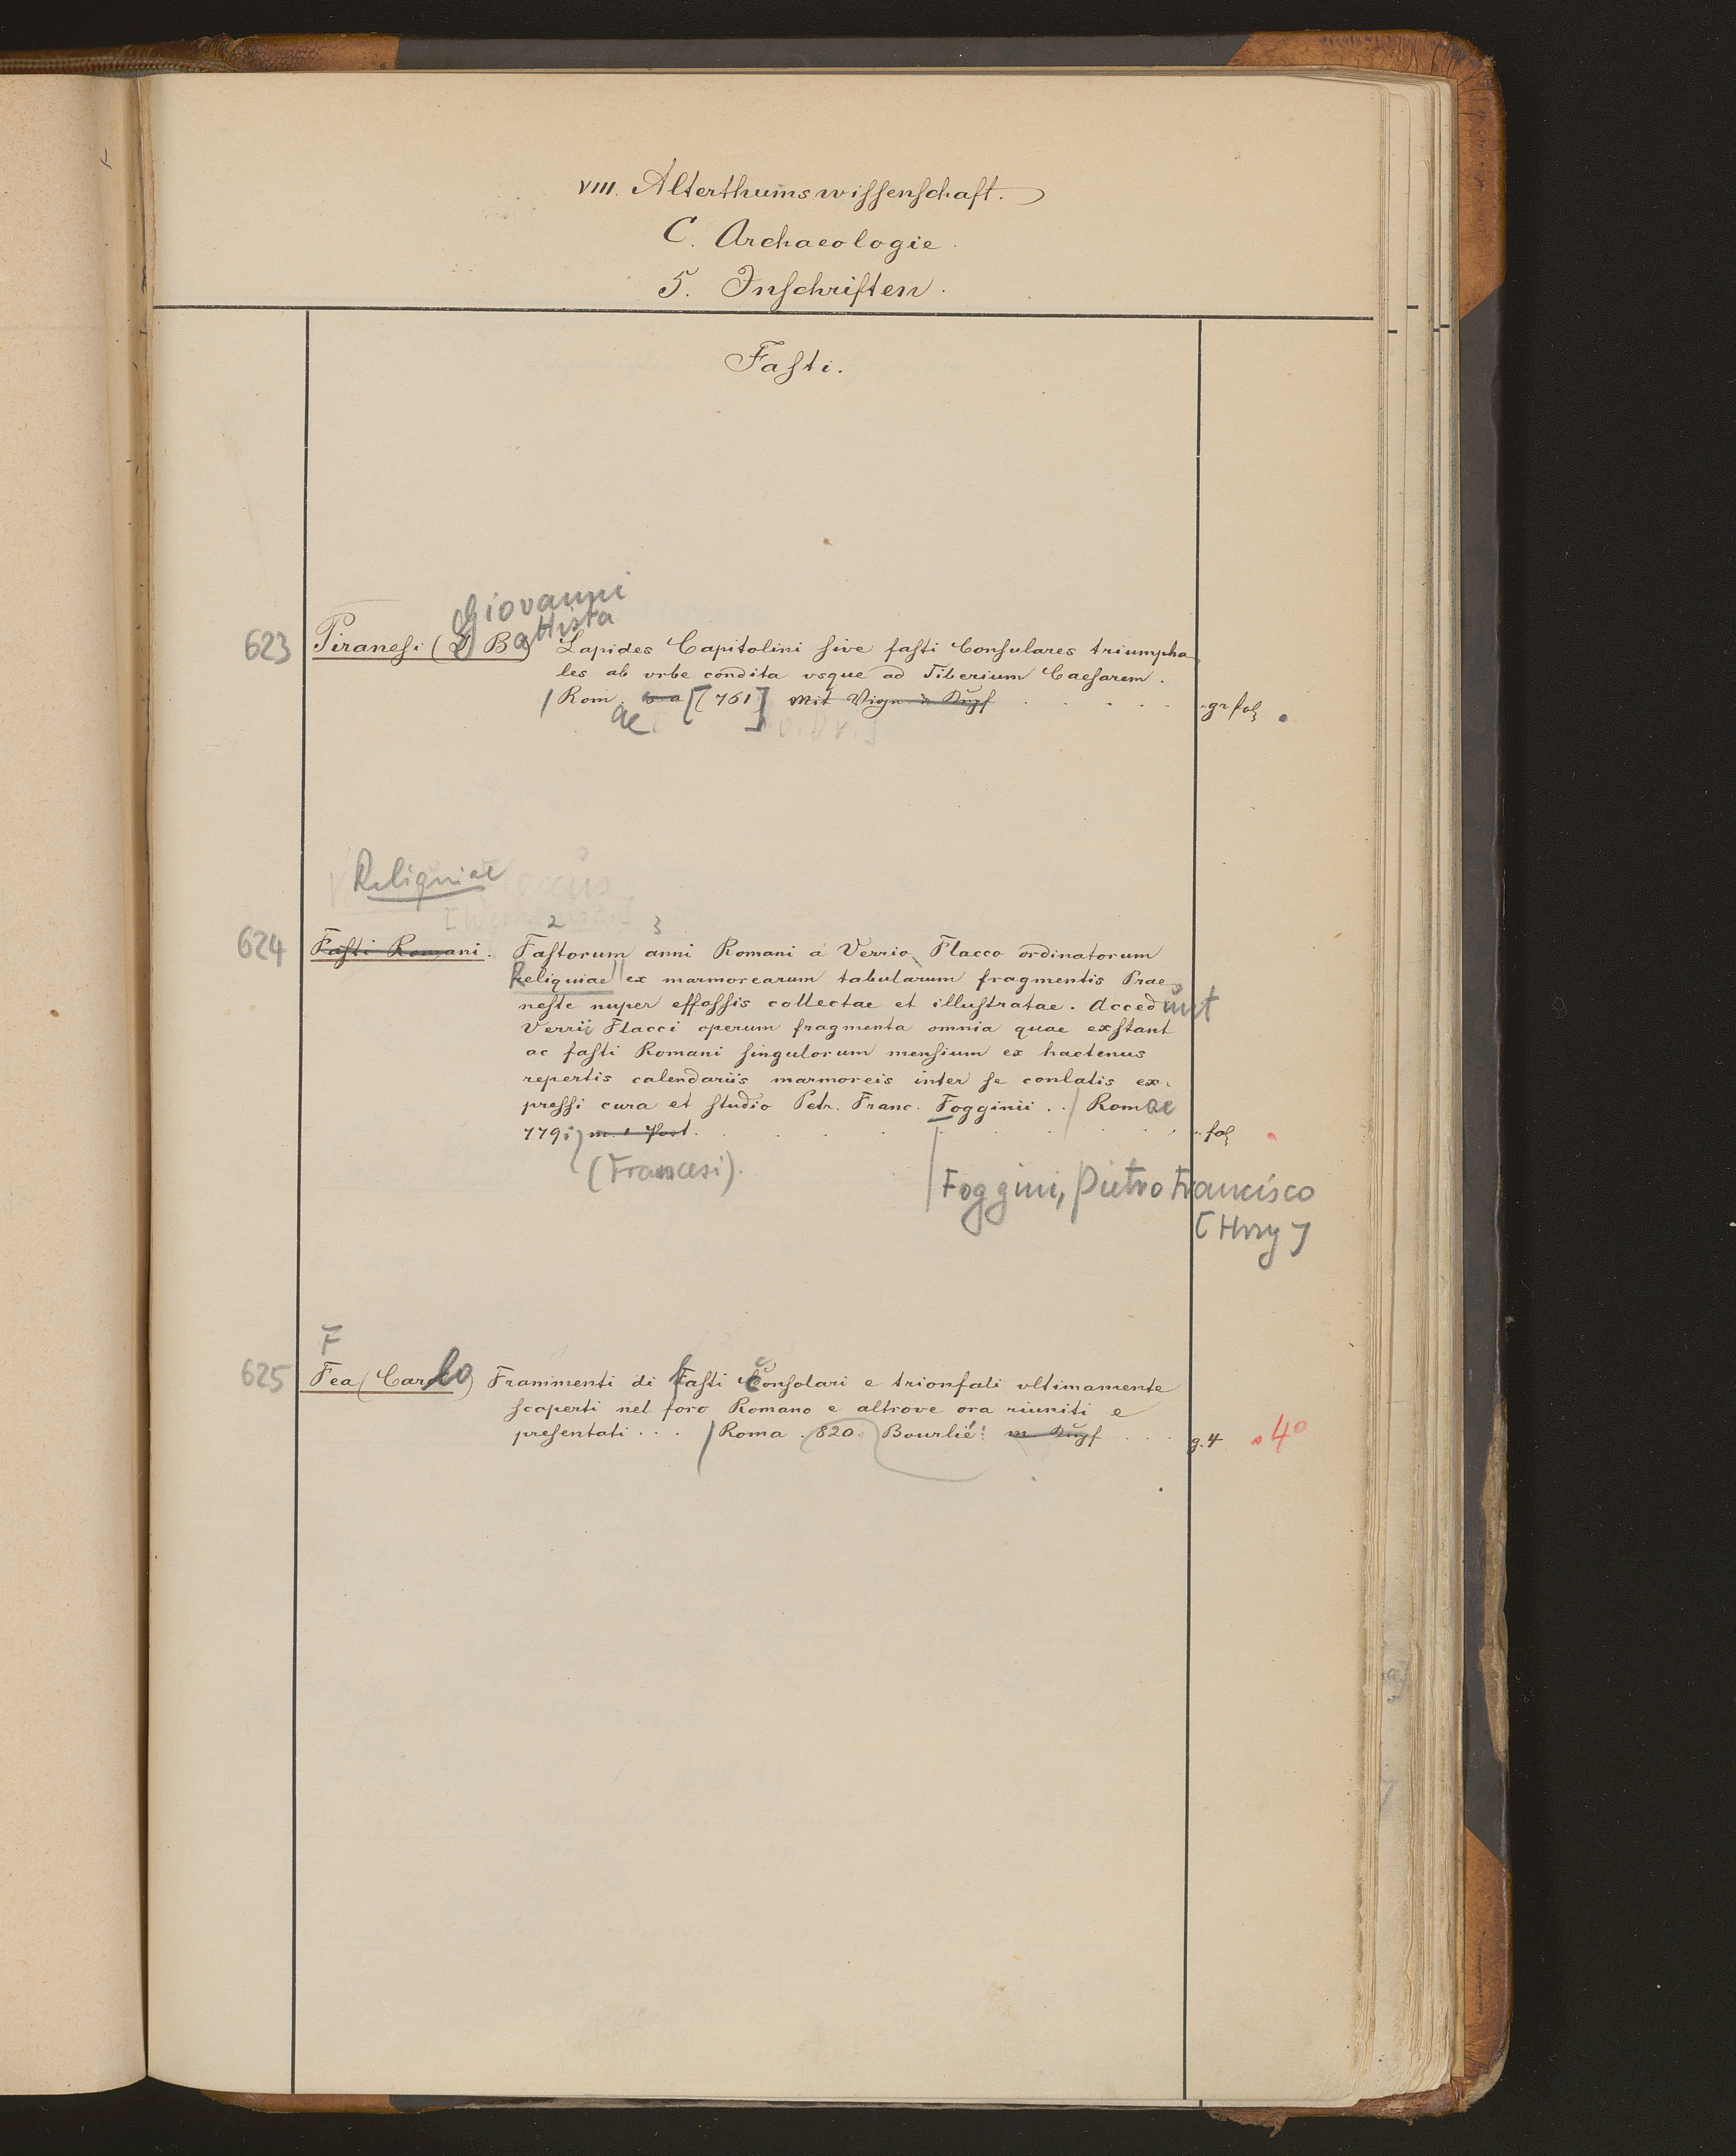 VIII. Alterthumswissenschaft.
C. Archaeologie.
5. Inschriften.
Fasti.
Giovanni
Battista
623 Piranesi (J Ba) Lapides Capitolini sive fasti Consulares triumpha-
les ab vrbe condita vsque ad Tiberium Caesarem.
Rom. s a [761] Mit Vign u Kupf . . . . . gr fol
ae
Reliquiae
2 3
624 Fasti Romani. Fastorum anni Romani a Verrio Flacco ordinatorum
Reliquiae ex marmorearum tabularum fragmentis Prae-
neste nuper effossis collectae et illustratae. Accedunt
Verrii Flacci operum fragmenta omnia quae exstant
ac fasti Romani singulorum mensium ex hactenus
repertis calendariis marmoreis inter se conlatis ex-
pressi cura et studio Petr. Franc. Fogginii . . / Romae
779; m. 1 Port. . . . . . . fol
(Francesi).
Foggini, Pietro Francisco
[Hrsg]
F
625 Fea (Carlo) Frammenti di fasti consolari e trionfali vltimamente
scoperti nel foro Romano e altrove ora riuniti e
presentati . . . / Roma . 820. Bourlié. m Kupf . . . g. 4 4°